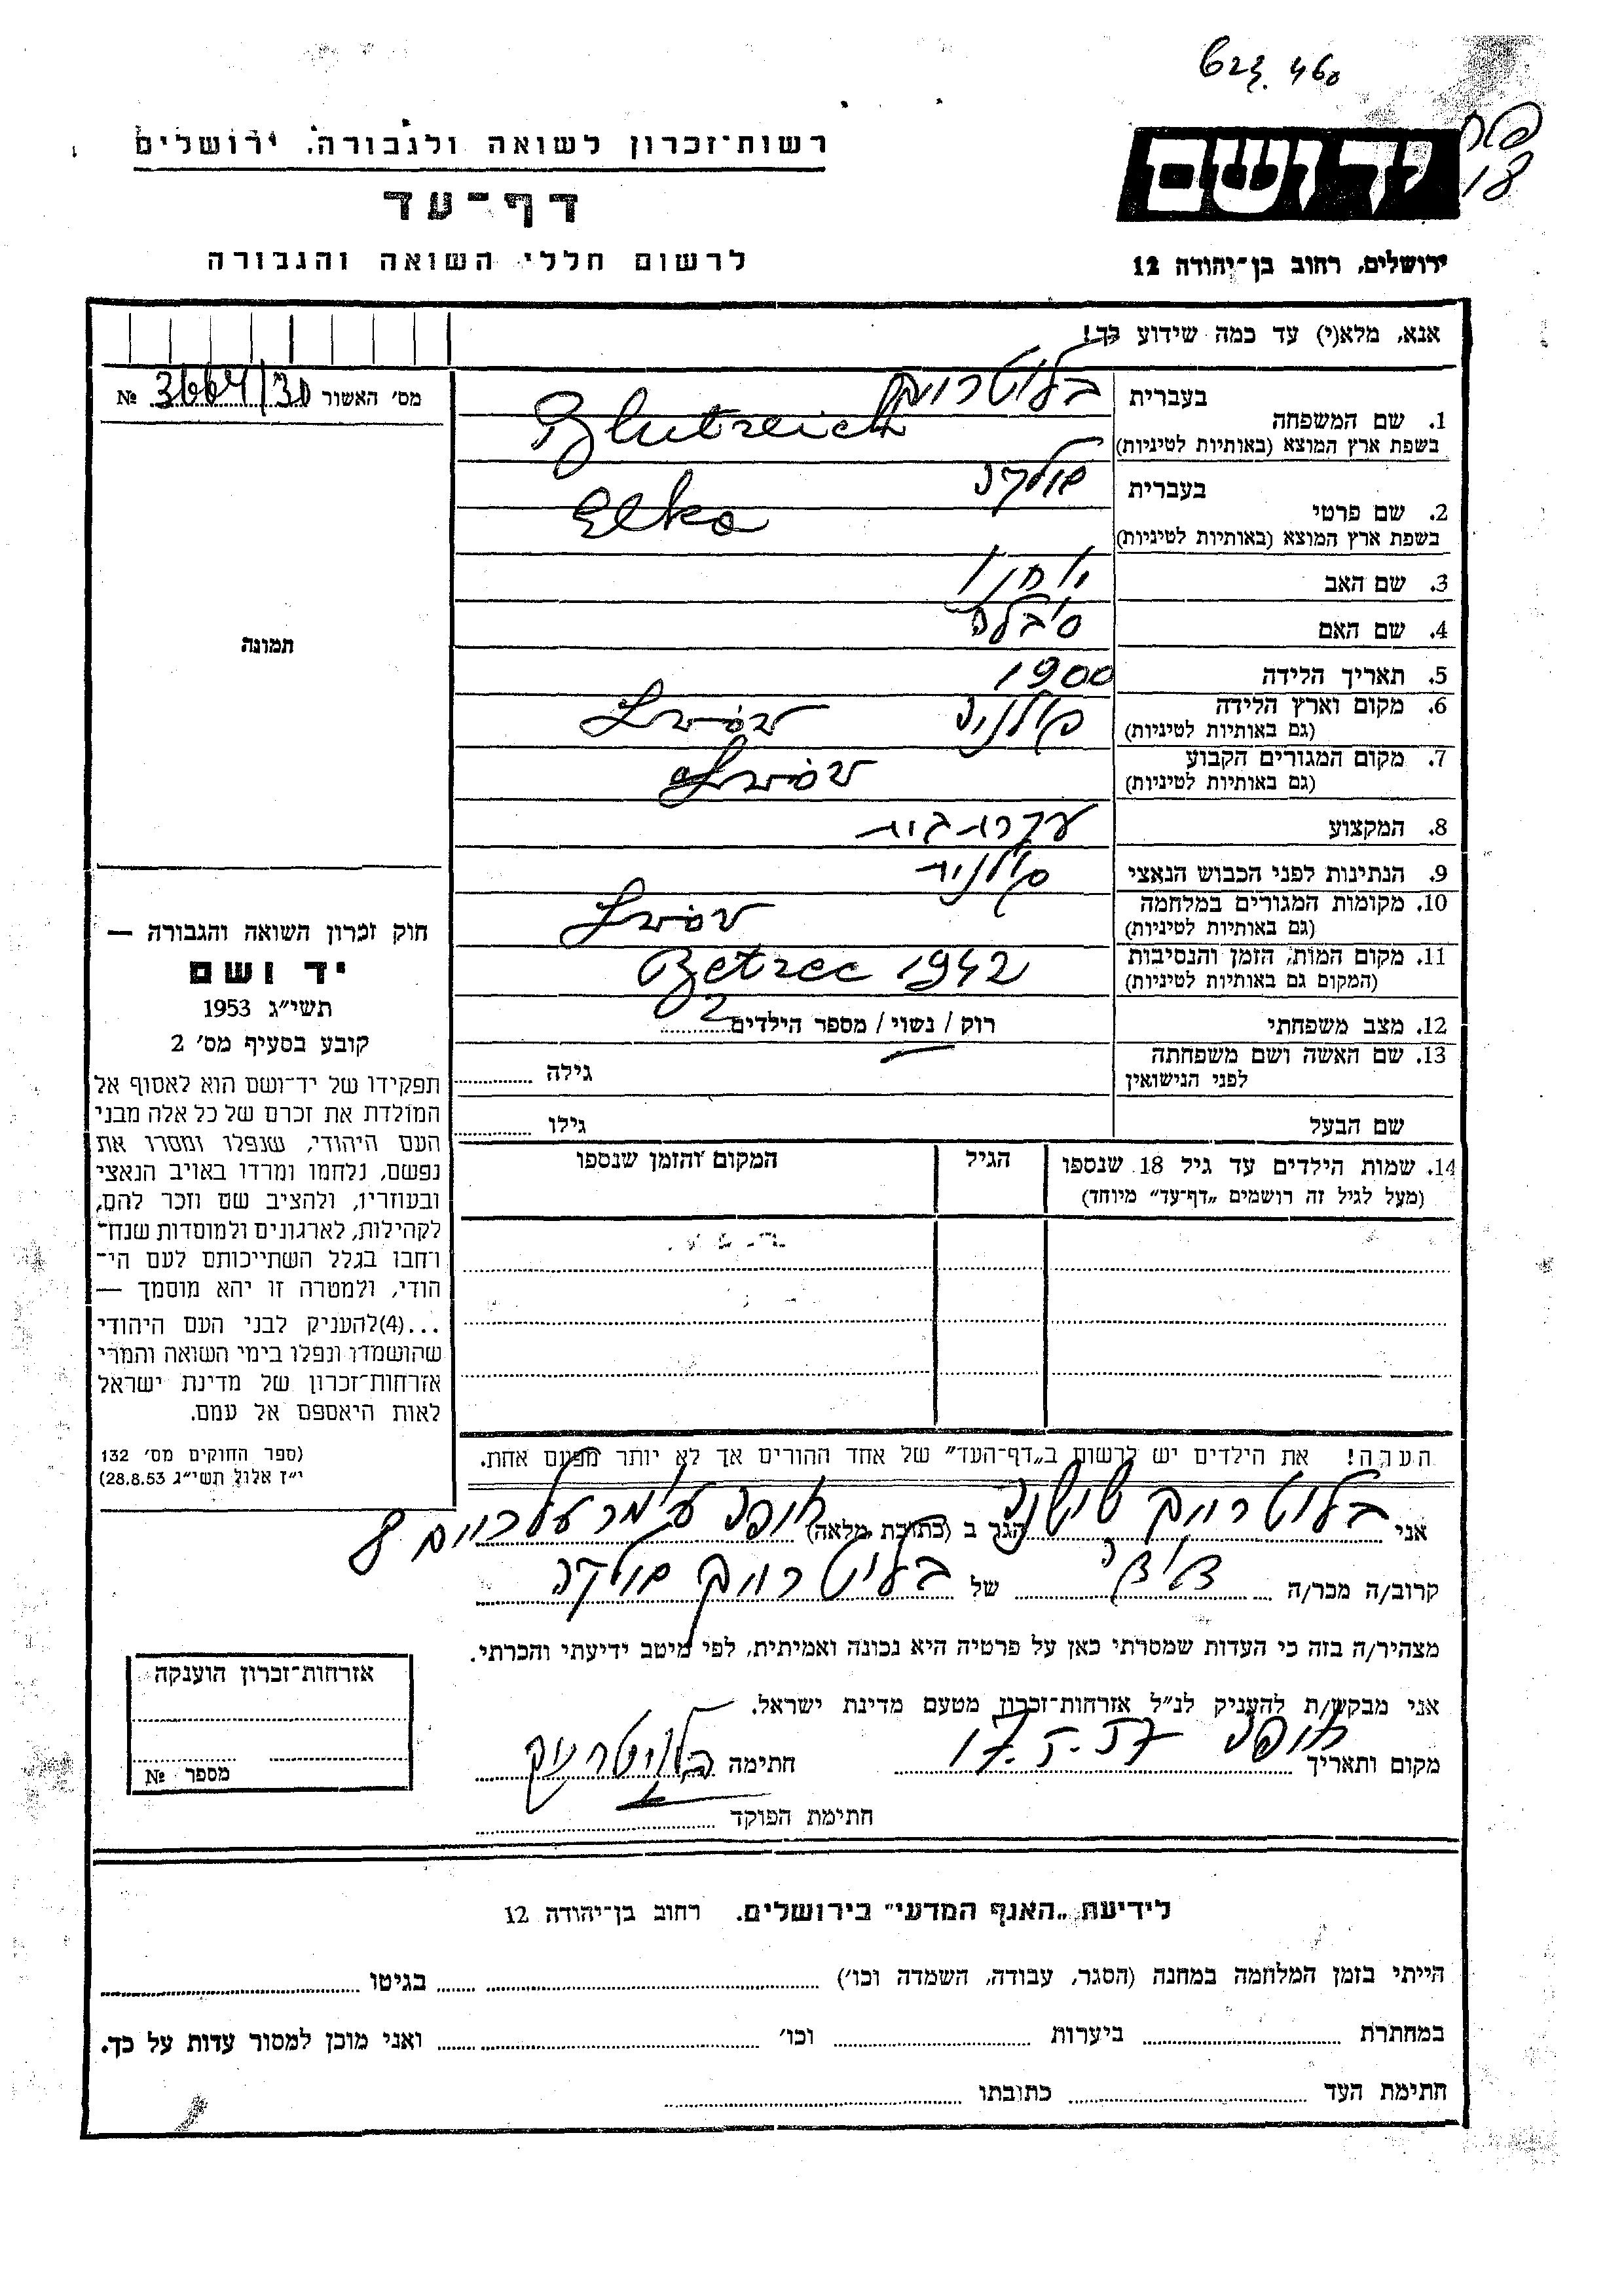 רשות־זכרון לשואה ולגבורה, ירושלים
דף־עד
לרשום חללי השואה והגבורה
יד ושם
ירושלים, רחוב בן־יהודה 12
אנא, מלא(י) עד כמה שידוע לך!
מס׳ האשור № 3664/30
1. שם המשפחה
בעברית בלוטרייך
בשפת ארץ המוצא (באותיות לטיניות) Blutreich
2. שם פרטי
בעברית
בשפת ארץ המוצא (באותיות לטיניות) Elka
3. שם האב יוחנן
4. שם האם
5. תאריך הלידה 1900
6. מקום וארץ הלידה פולניה Lwów
(גם באותיות לטיניות)
7. מקום המגורים הקבוע Lwów
(גם באותיות לטיניות)
8. המקצוע עקרת בית
9. הנתינות לפני הכבוש הנאצי פולנית
10. מקומות המגורים במלחמה Lwów
(גם באותיות לטיניות)
11. מקום המות, הזמן והנסיבות Betzec 1942
(המקום גם באותיות לטיניות)
12. מצב משפחתי רוק / נשוי / מספר הילדים 2
13. שם האשה ושם משפחתה
לפני הנישואין
גילה
שם הבעל גילו
14. שמות הילדים עד גיל 18 שנספו הגיל המקום והזמן שנספו
(מעל לגיל זה רושמים „דף־עד״ מיוחד)
הערה! את הילדים יש לרשות ב„דף־העד״ של אחד ההורים אך לא יותר מפעם אחת.
אני בלוטרייך הגר ב (כתובת מלאה) חיפה 8
קרוב/ה מכר/ה של בלוטרייך
מצהיר/ה בזה כי העדות שמסרתי כאן על פרטיה היא נכונה ואמיתית, לפי מיטב ידיעתי והכרתי.
אני מבקש/ת להעניק לנ״ל אזרחות־זכרון מטעם מדינת ישראל.
מקום ותאריך חיפה 17.5.57 חתימה בלוטרייך
חתימת הפוקד
תמונה
חוק זכרון השואה והגבורה —
יד ושם
תשי״ג 1953
קובע בסעיף מס׳ 2
תפקידו של יד־ושם הוא לאסוף אל
המולדת את זכרם של כל אלה מבני
העם היהודי, שנפלו ומסרו את
נפשם, נלחמו ומרדו באויב הנאצי
ובעוזריו, ולהציב שם וזכר להם,
לקהילות, לארגונים ולמוסדות שנח־
רחבו בגלל השתייכותם לעם הי־
הודי, ולמטרה זו יהא מוסמך —
...(4)להעניק לבני העם היהודי
שהושמדו ונפלו בימי השואה והמרי
אזרחות־זכרון של מדינת ישראל
לאות היאספם אל עמם.
(ספר החוקים מס׳ 132
י״ז אלול תשי״ג 28.8.53)
אזרחות־זכרון הוענקה
מספר №
לידיעת „האגף המדעי״ בירושלים. רחוב בן־יהודה 12
הייתי בזמן המלחמה במחנה (הסגר, עבודה, השמדה וכו׳) בגיטו
במחתרת ביערות וכו׳ ואני מוכן למסור עדות על כך.
חתימת העד כתובתו